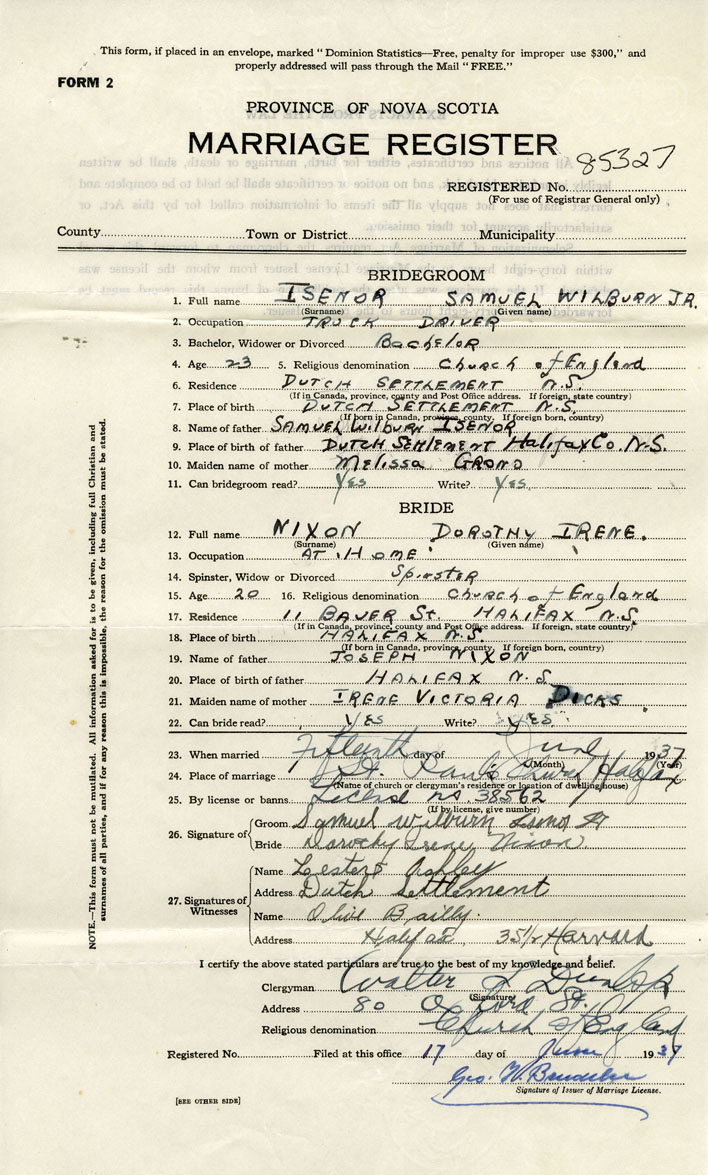 This form, if placed in an envelope, marked "Dominion Statistics—Free, penalty for improper use $300," and
properly addressed will pass through the Mail "FREE."
FORM 2
PROVINCE OF NOVA SCOTIA
MARRIAGE REGISTER
85327
REGISTERED No.
(For use of Registrar General only)
County Town or District Municipality
BRIDEGROOM
1. Full name ISENOR SAMUEL WILBURN JR.
(Surname) (Given name)
2. Occupation TRUCK DRIVER
3. Bachelor, Widower or Divorced Bachelor
4. Age 23 5. Religious denomination Church of England
6. Residence DUTCH SETTLEMENT N.S.
(If in Canada, province, county and Post Office address. If foreign, state country)
7. Place of birth DUTCH SETTLEMENT N.S.
(If born in Canada, province, county. If foreign born, country)
8. Name of father SAMUEL Wilburn ISENOR
9. Place of birth of father DUTCH SETTLEMENT Halifax Co. N.S.
10. Maiden name of mother Melissa GRONO
11. Can bridegroom read? Yes Write? Yes
BRIDE
12. Full name NIXON DOROTHY IRENE.
(Surname) (Given name)
13. Occupation AT HOME
14. Spinster, Widow or Divorced Spinster
15. Age 20 16. Religious denomination Church of England
17. Residence 11 BAUER St. HALIFAX N.S.
(If in Canada, province, county and Post Office address. If foreign, state country)
18. Place of birth HALIFAX N.S.
(If born in Canada, province, county. If foreign born, country)
19. Name of father JOSEPH NIXON
20. Place of birth of father HALIFAX N.S.
21. Maiden name of mother IRENE VICTORIA DICKS
22. Can bride read? YES Write? YES
23. When married Fifteenth day of June 1937
(Month) (Year)
24. Place of marriage St. Pauls Church Halifax
(Name of church or clergyman's residence or location of dwelling house)
25. By license or banns License no. 38562
(If by license, give number)
26. Signature of
Groom Samuel Wilburn Isenor Jr
Bride Dorothy Irene Nixon
27. Signatures of Witnesses
Name Lester Ashley
Address Dutch Settlement
Name Olive Bailly
Address Halifax 35½ Harvard
I certify the above stated particulars are true to the best of my knowledge and belief.
Clergyman Walter L Dunlop
(Signature)
Address 80 Oxford St.
Religious denomination Church of England
Registered No. Filed at this office 17 day of June 1937
Geo. W.
Signature of Issuer of Marriage License.
[SEE OTHER SIDE]
NOTE.—This form must not be mutilated. All information asked for is to be given, including full Christian and
surnames of all parties, and if for any reason this is impossible, the reason for the omission must be stated.